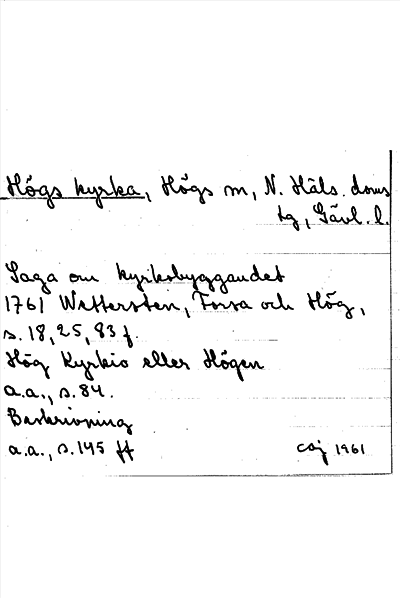 Högs kyrka, Högs m, N. Häls. doms
tg, Gävl. l.
Saga om kyrkobyggandet
1761 Wettersten, Forsa och Hög,
s. 18, 25, 83 f.
Hög Kyrkio eller Högen
a.a., s. 84.
Beskrivning
a.a., s. 145 ff
caj 1961